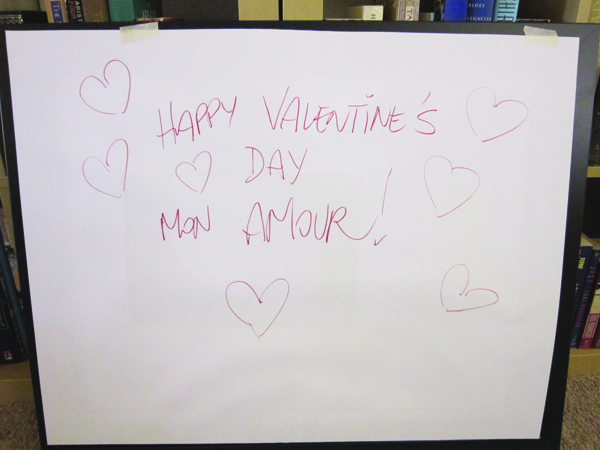 HAPPY VALENTINE'S
DAY
MON AMOUR!